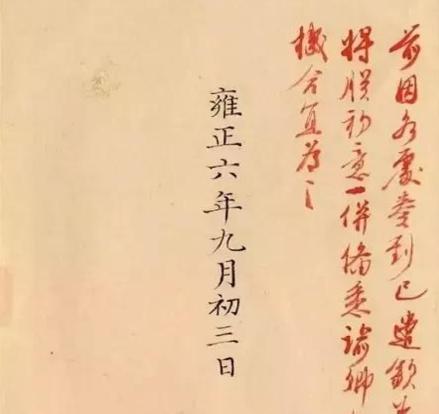 前因各處奏到已遣欽
將朕初意一併俻悉諭卿
機合宜為之
雍正六年九月初三日